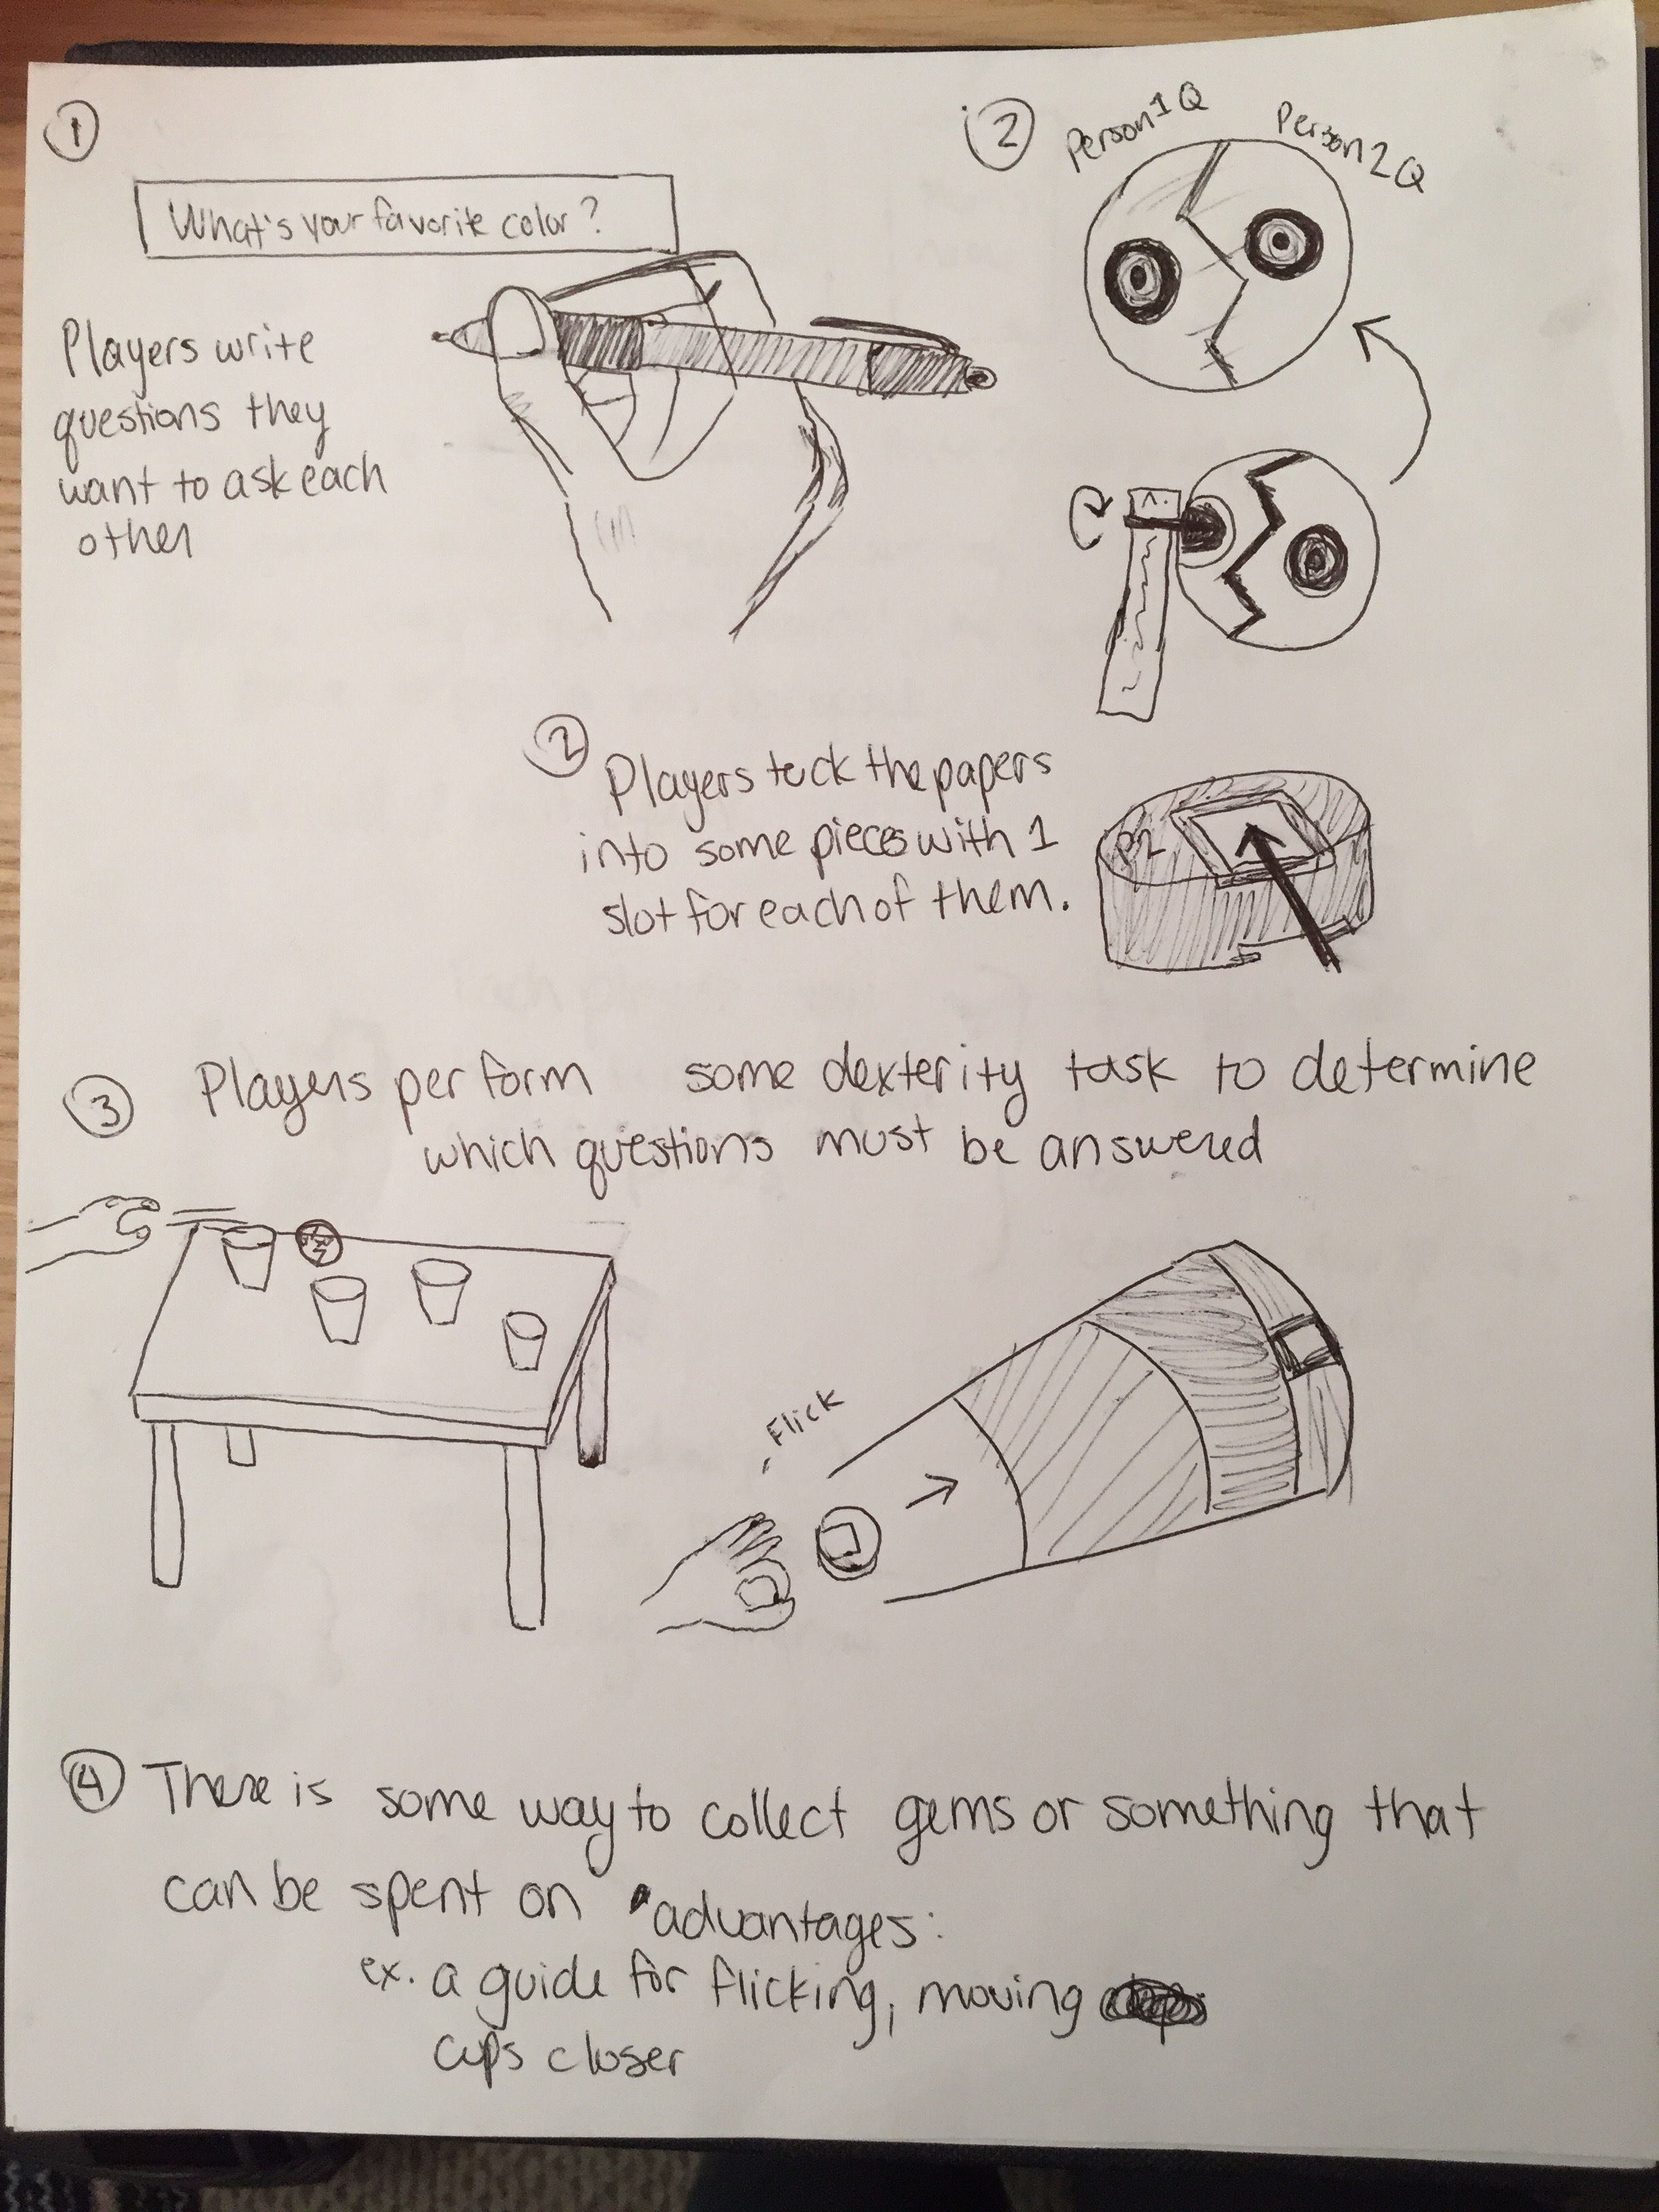 1
What's your favorite color?
Players write
questions they
want to ask each
other
2
Person 1 Q
Person 2 Q
2
Players tuck the papers
into some pieces with 1
slot for each of them.
P2
3
Players perform some dexterity task to determine
which questions must be answered
Flick
4
There is some way to collect gems or something that
can be spent on advantages:
ex. a guide for flicking, moving
cups closer